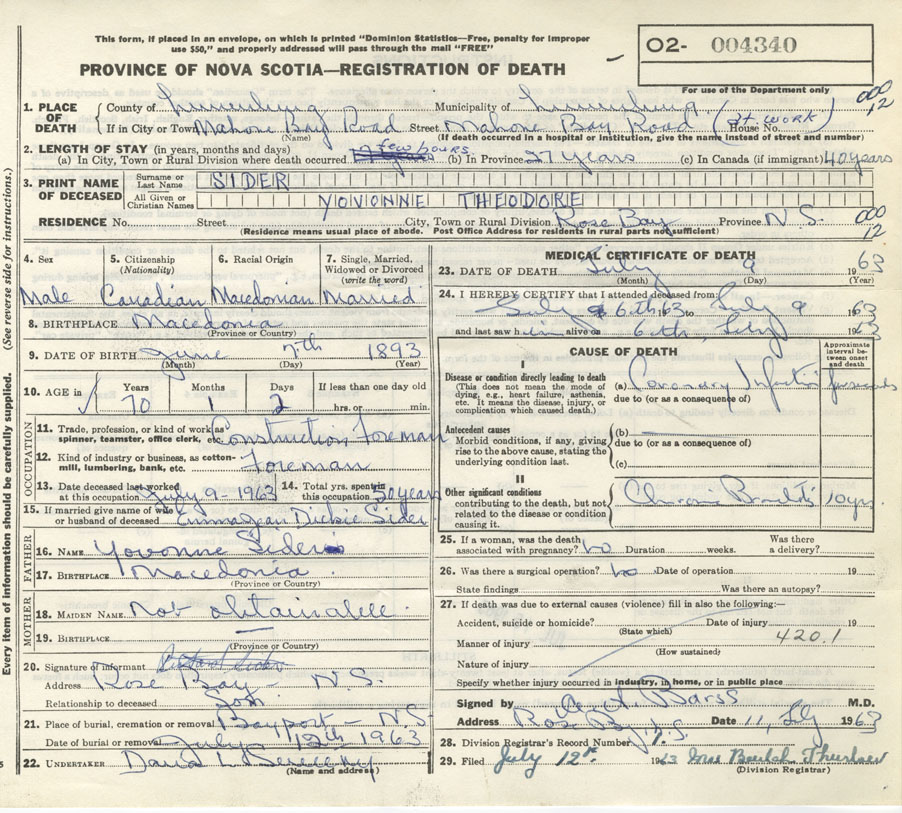 This form, if placed in an envelope, on which is printed "Dominion Statistics—Free, penalty for improper
use $50," and properly addressed will pass through the mail "FREE"
O2- 004340
PROVINCE OF NOVA SCOTIA—REGISTRATION OF DEATH
For use of the Department only
1. PLACE OF DEATH { County of Lunenburg Municipality of Lunenburg
If in City or Town Mahone Bay Road Street Mahone Bay Road (at work) House No.
(Name) (If death occurred in a hospital or institution, give the name instead of street and number)
000
12
2. LENGTH OF STAY (in years, months and days)
(a) In City, Town or Rural Division where death occurred few hours (b) In Province 27 years (c) In Canada (if immigrant) 40 years
3. PRINT NAME OF DECEASED { Surname or Last Name SIDER
All Given or Christian Names YOVONNE THEODORE
RESIDENCE No. Street City, Town or Rural Division Rose Bay Province N.S.
(Residence means usual place of abode. Post Office Address for residents in rural parts not sufficient)
000
12
(See reverse side for instructions.)
Every item of information should be carefully supplied.
4. Sex 5. Citizenship (Nationality) 6. Racial Origin 7. Single, Married, Widowed or Divorced (write the word)
Male Canadian Macedonian Married
8. BIRTHPLACE Macedonia
(Province or Country)
9. DATE OF BIRTH June 7th 1893
(Month) (Day) (Year)
10. AGE in Years Months Days If less than one day old
70 1 2 hrs. or min.
OCCUPATION
11. Trade, profession, or kind of work as spinner, teamster, office clerk, etc. Construction Foreman
12. Kind of industry or business, as cotton-mill, lumbering, bank, etc. Foreman
13. Date deceased last worked at this occupation July 9-1963 14. Total yrs. spent in this occupation 30 years
15. If married give name of wife or husband of deceased Emmajean Dickie Sider
FATHER
16. NAME Yovonne Sider
17. BIRTHPLACE Macedonia
(Province or Country)
MOTHER
18. MAIDEN NAME Not obtainable
19. BIRTHPLACE
(Province or Country)
20. Signature of informant
Address Rose Bay - N.S.
Relationship to deceased Son
21. Place of burial, cremation or removal Bayport - N.S.
Date of burial or removal July 12th 1963
22. UNDERTAKER
(Name and address)
MEDICAL CERTIFICATE OF DEATH
23. DATE OF DEATH July 9 1963
(Month) (Day) (Year)
24. I HEREBY CERTIFY that I attended deceased from
July 6th 63 to July 9 1963
and last saw him alive on 6th July 1963
CAUSE OF DEATH
Approximate interval between onset and death
I
Disease or condition directly leading to death
(This does not mean the mode of dying, e.g., heart failure, asthenia, etc. It means the disease, injury, or complication which caused death.)
(a) Coronary
due to (or as a consequence of)
Antecedent causes
Morbid conditions, if any, giving rise to the above cause, stating the underlying condition last.
(b)
due to (or as a consequence of)
(c)
II
Other significant conditions
contributing to the death, but not related to the disease or condition causing it.
Chronic 10 yrs.
25. If a woman, was the death associated with pregnancy? No Duration weeks. Was there a delivery?
26. Was there a surgical operation? No Date of operation 19
State findings Was there an autopsy?
27. If death was due to external causes (violence) fill in also the following:
Accident, suicide or homicide? Date of injury 19
(State which)
420.1
Manner of injury
(How sustained)
Nature of injury
Specify whether injury occurred in industry, in home, or in public place
Signed by Barss M.D.
Address Rose Bay N.S. Date 11, July 1963
28. Division Registrar's Record Number
29. Filed July 12th 1963 Beulah
(Division Registrar)